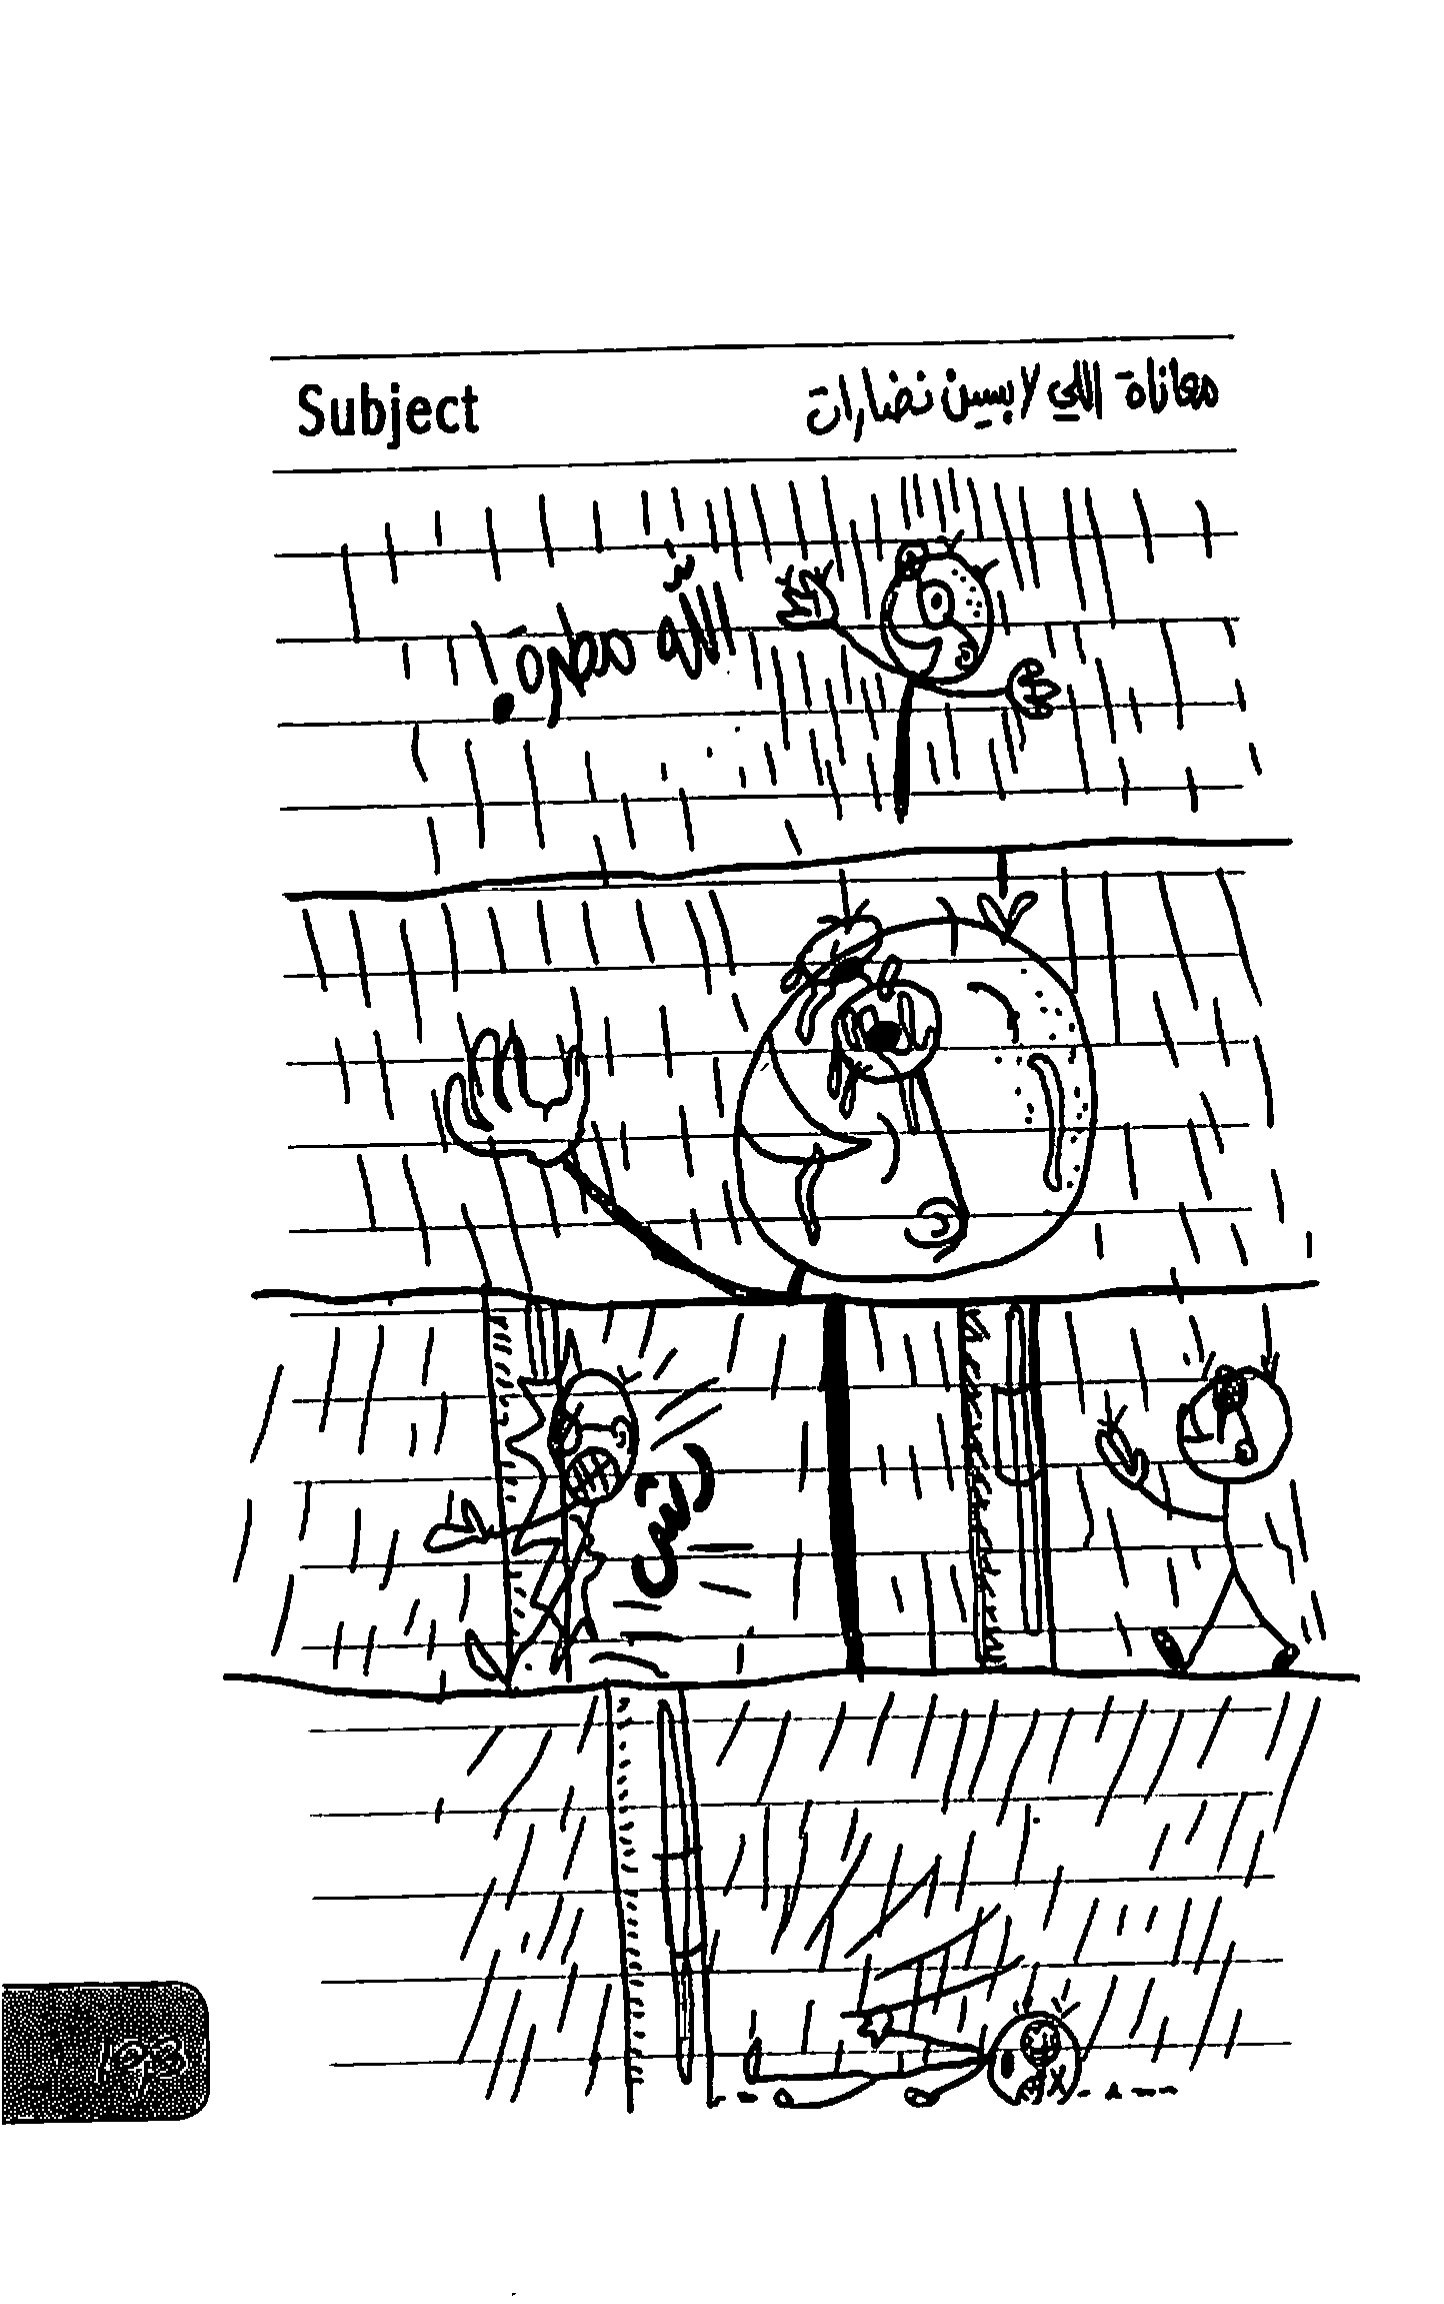 Subject
معاناة اللي لابسين نضارات
اللّه مطرة
طش